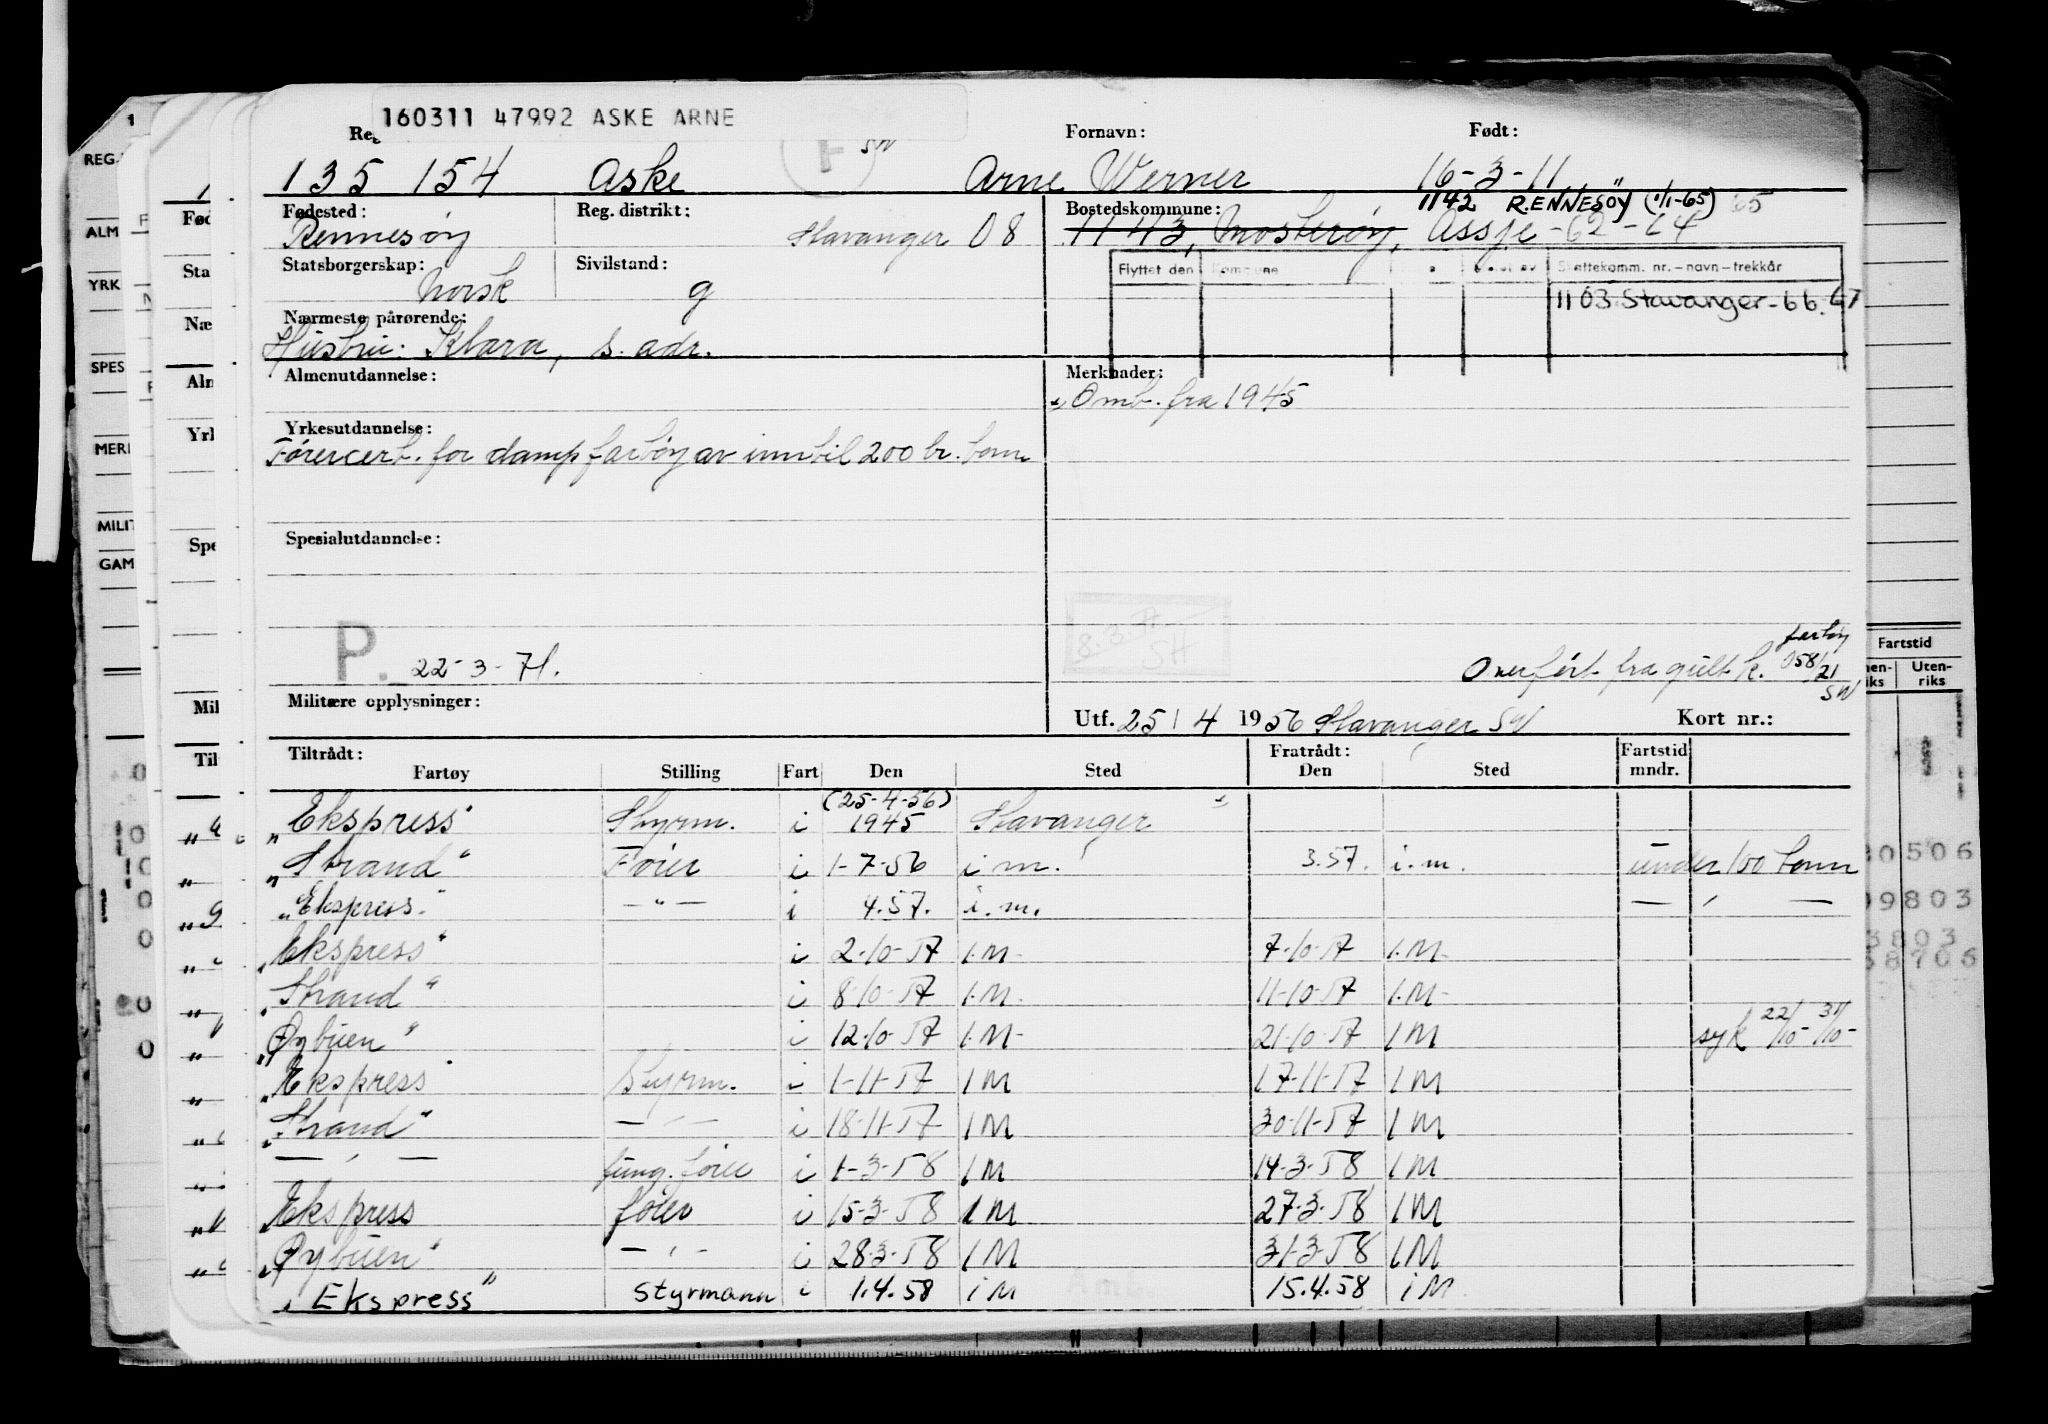 160311 47992 ASKE ARNE
Reg
Fornavn:
Født:
135 154 Aske F SW Arne Werner 16-3-11
1142 RENNESÖY (1/1-65) 65
Fødested: Reg. distrikt: Bostedskommune:
Rennesøy Stavanger 08 1143, Mosterøy, 62-64
Statsborgerskap: Sivilstand:
Norsk g
Flyttet den Kommune Skattekomm. nr. – navn – trekkår
1103 Stavanger-66.67
Nærmeste pårørende:
Hustru: Klara, s. adr.
Almenutdannelse: Merknader:
Omb. fra 1945
Yrkesutdannelse:
Førercert. for dampfartøy av inntil 200 br. tonn
Spesialutdannelse:
8.3.71
SH
P. 22-3-71.
Overført fra gult k. fartøy 058/21 SW
Militære opplysninger:
Utf. 25/4 1956 Stavanger SW Kort nr.:
Tiltrådt: Fratrådt: Fartstid
Fartøy Stilling Fart Den Sted Den Sted mndr.
(25-4-56)
"Ekspress" Styrm. i 1945 Stavanger
"Strand" Fører i 1-7-56 i.m. 3.57. i.m. under 100 tonn
"Ekspress" — " — i 4.57. i.m. — " —
"Ekspress" i 2-10-57 I.M. 7-10-57 I.M.
"Strand" i 8-10-57 I.M. 11-10-57 I.M.
"Øybuen" i 12-10-57 I.M. 21-10-57 I M syk 22/10-31/10-
"Ekspress" Styrm. i 1-11-57 I M 17-11-57 I M
"Strand" — " — i 18-11-57 I M 30-11-57 I M
— " — fung. fører i 1-3-58 I M 14-3-58 I M
Ekspress fører i 15-3-58 I M 27-3-58 I M
"Øybuen" — " — i 28-3-58 I M 31-3-58 I M
"Ekspress" Styrmann i 1.4.58 i M 15.4.58 i M
REG.
ALM
YRK
SPES
MERK
MILIT
GAM
Fød
Sta
Næ
Aln
Yrk
Spe
Mil
Til
Fartstid
Uten-
riks